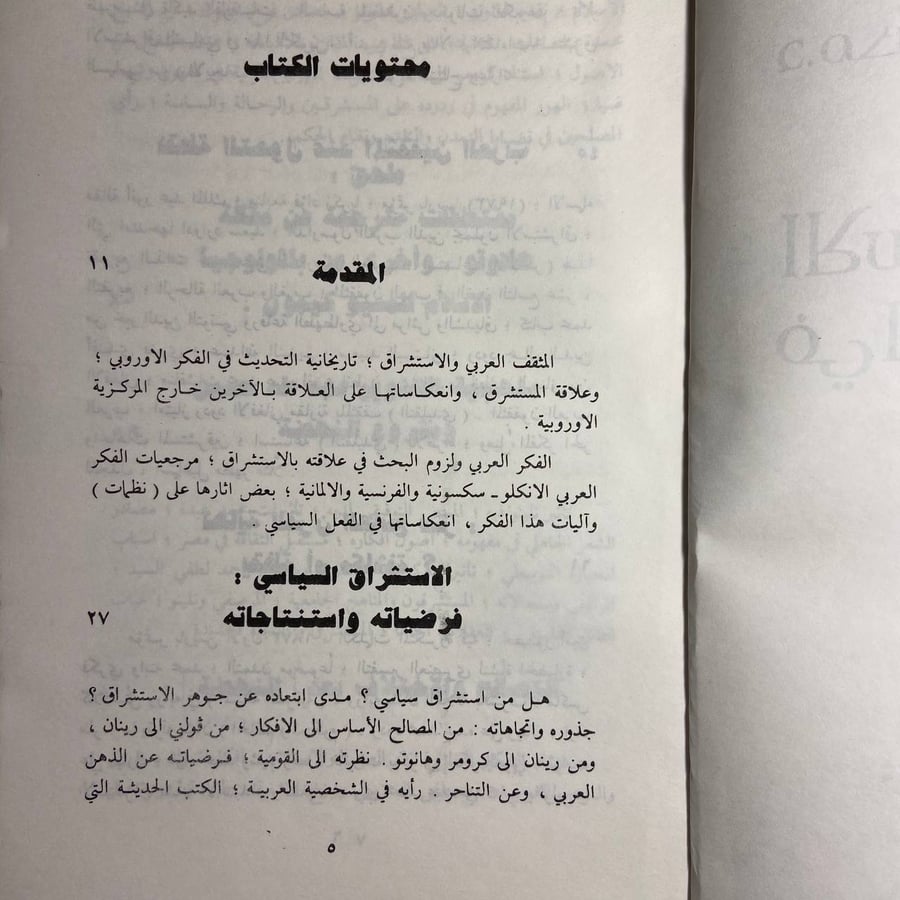 محتويات الكتاب
المقدمة ١١
المثقف العربي والاستشراق ؛ تاريخانية التحديث في الفكر الاوروبي ؛
وعلاقة المستشرق ، وانعكاساتها على العلاقة بالآخرين خارج المركزية
الاوروبية .
الفكر العربي ولزوم البحث في علاقته بالاستشراق ؛ مرجعيات الفكر
العربي الانكلو ـ سكسونية والفرنسية والالمانية ؛ بعض اثارها على ( نظمات )
وآليات هذا الفكر ، انعكاساتها في الفعل السياسي .
الاستشراق السياسي :
فرضياته واستنتاجاته ٢٧
هل من استشراق سياسي ؟ مدى ابتعاده عن جوهر الاستشراق ؟
جذوره واتجاهاته : من المصالح الأساس الى الافكار ؛ من ڤولني الى رينان ،
ومن رينان الى كرومر وهانوتو . نظرته الى القومية ؛ فرضياته عن الذهن
العربي ، وعن التناحر . رأيه في الشخصية العربية ؛ الكتب الحديثة التي
٥